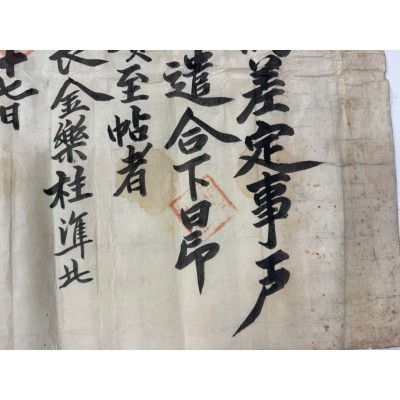 差定事戶
遣合下日印
至帖者
長金樂柱準此
十七日